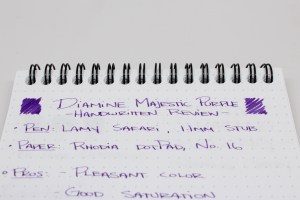 DIAMINE MAJESTIC PURPLE
-HANDWRITTEN REVIEW-
• PEN: LAMY SAFARI, 1.1MM STUB
• PAPER: RHODIA DOTPAD, NO. 16
• PROS: - PLEASANT COLOR
- GOOD SATURATION